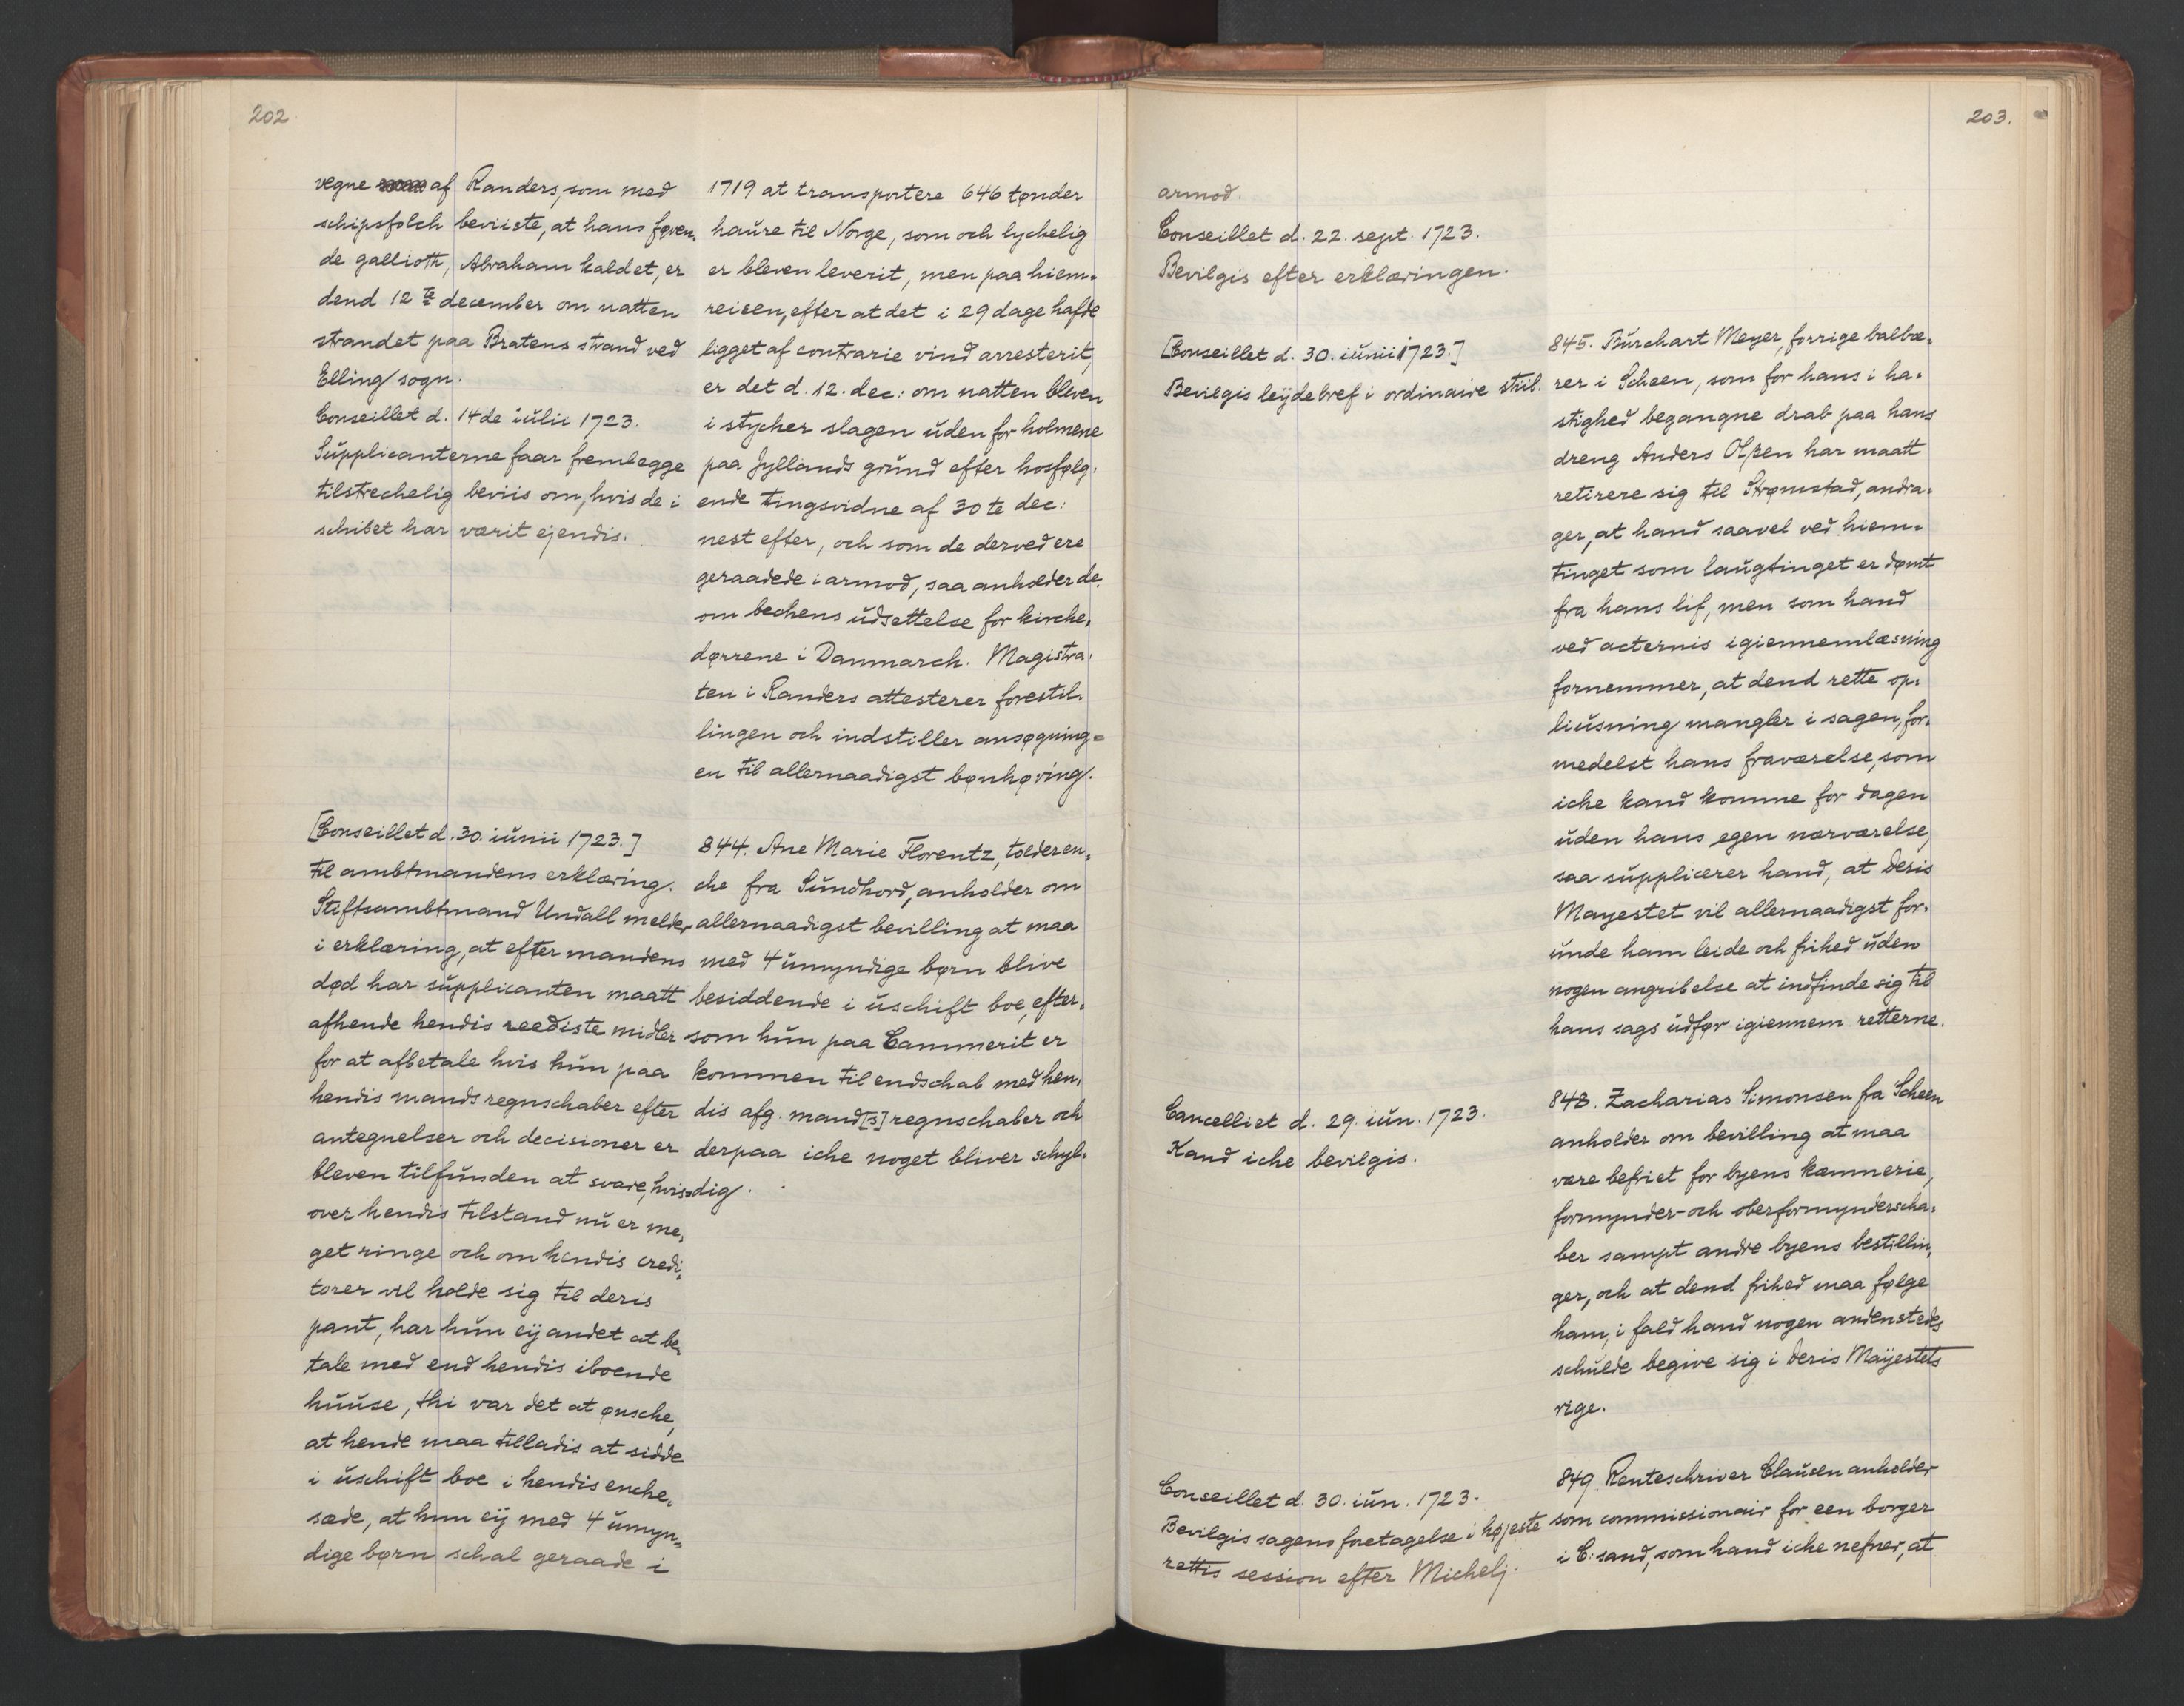 202.
vegne af Randers, som med
schipsfolch beviiste, at hans føren-
de gallioth, Abraham kaldet, er
dend 12te december om natten
strandet paa Bratens strand ved
Elling sogn.
Conseillet d. 14de iulii 1723.
Supplicanterne faar fremlegge
tilstrechelig beviis om, hvis de i
schibet har værit ejendis.
1719 at transportere 646 tønder
haure til Norge, som och lychelig
er bleven leverit, men paa hiem-
reisen, efter at det i 29 dage hafde
ligget af contrarie vind arresterit,
er det d. 12. dec: om natten bleven
i stycher slagen uden for holmene
paa Jyllands grund efter hosfølg-
ende tingsvidne af 30te dec:
nest efter, och som de derved ere
geraadede i armod, saa anholder de
om bechens udsettelse for kirche-
dørrene i Danmarch. Magistra-
ten i Randers attesterer forestil-
lingen och indstiller ansøgning-
en til allernaadigst bønhøring.
[Conseillet d. 30. iunii 1723.]
Til ambtmandens erklæring.
Stiftsambtmand Undall melder
i erklæring, at efter mandens
død har supplicanten maatt
afhende hendis reediste midler
for at afbetale hvis hun paa
hendis mands regnschaber efter
antegnelser och decisioner er
bleven tilfunden at svare, hvis-
over hendis tilstand nu er me-
get ringe och om hendis credi-
torer vil holde sig til deris
pant, har hun eij andet at be-
tale med end hendis iboende
huuse, thi var det at ønsche,
at hende maa tilladis at sidde
i uschift boe i hendis enche-
sæde, at hun eij med 4 umyn-
dige børn schal geraade i
844. Ane Marie Florentz, tolderen-
che fra Sundhord, anholder om
allernaadigst bevilling at maa
med 4 umyndige børn blive
besiddende i uschift boe, efter-
som hun paa Cammerit er
kommen til endschab med hen-
dis afg. mand[s] regnschaber och
derpaa iche noget bliver schyl-
dig.
203.
armod.
Conseillet d. 22. sept. 1723.
Bevilgis efter erklæringen.
[Conseillet d. 30. iunii 1723.]
Bevilgis leijdebref i ordinaire stiil.
845. Burchart Meyer, forrige balbæ-
rer i Scheen, som for hans i ha-
stighed begangne drab paa hans
dreng Anders Olßen har maatt
retirere sig til Strømstad, andra-
ger, at hand saavel ved hiem-
tinget som laugtinget er dømt
fra hans lif, men som hand
ved acternis igiennemlæsning
fornemmer, at dend rette op-
liusning mangler i sagen, for-
medelst hans fraværelse, som
iche kand komme for dagen
uden hans egen nærværelse,
saa supplicerer hand, at deris
Mayestet vil allernaadigst for-
unde ham leide och frihed uden
nogen angribelse at indfinde sig til
hans sags udfør igiennem retterne.
Cancelliet d. 29. iun. 1723.
Kand iche bevilgis.
848. Zacharias Simonsen fra Scheen
anholder om bevilling at maa
være befriet for byens kæmnerie,
formynder- och oberformynderscha-
ber sampt andre byens bestillin-
ger, och at dend frihed maa følge
ham, i fald hand nogen andenstedz
schulde begive sig i deris Maÿestets
rige.
Conseillet d. 30. iun. 1723.
Bevilgis sagens foretagelse i højeste
rettis session efter Michelj.
849. Renteschriver Clausen anholder
som commissionair for een borger
i C:sand, som hand iche nefner, at